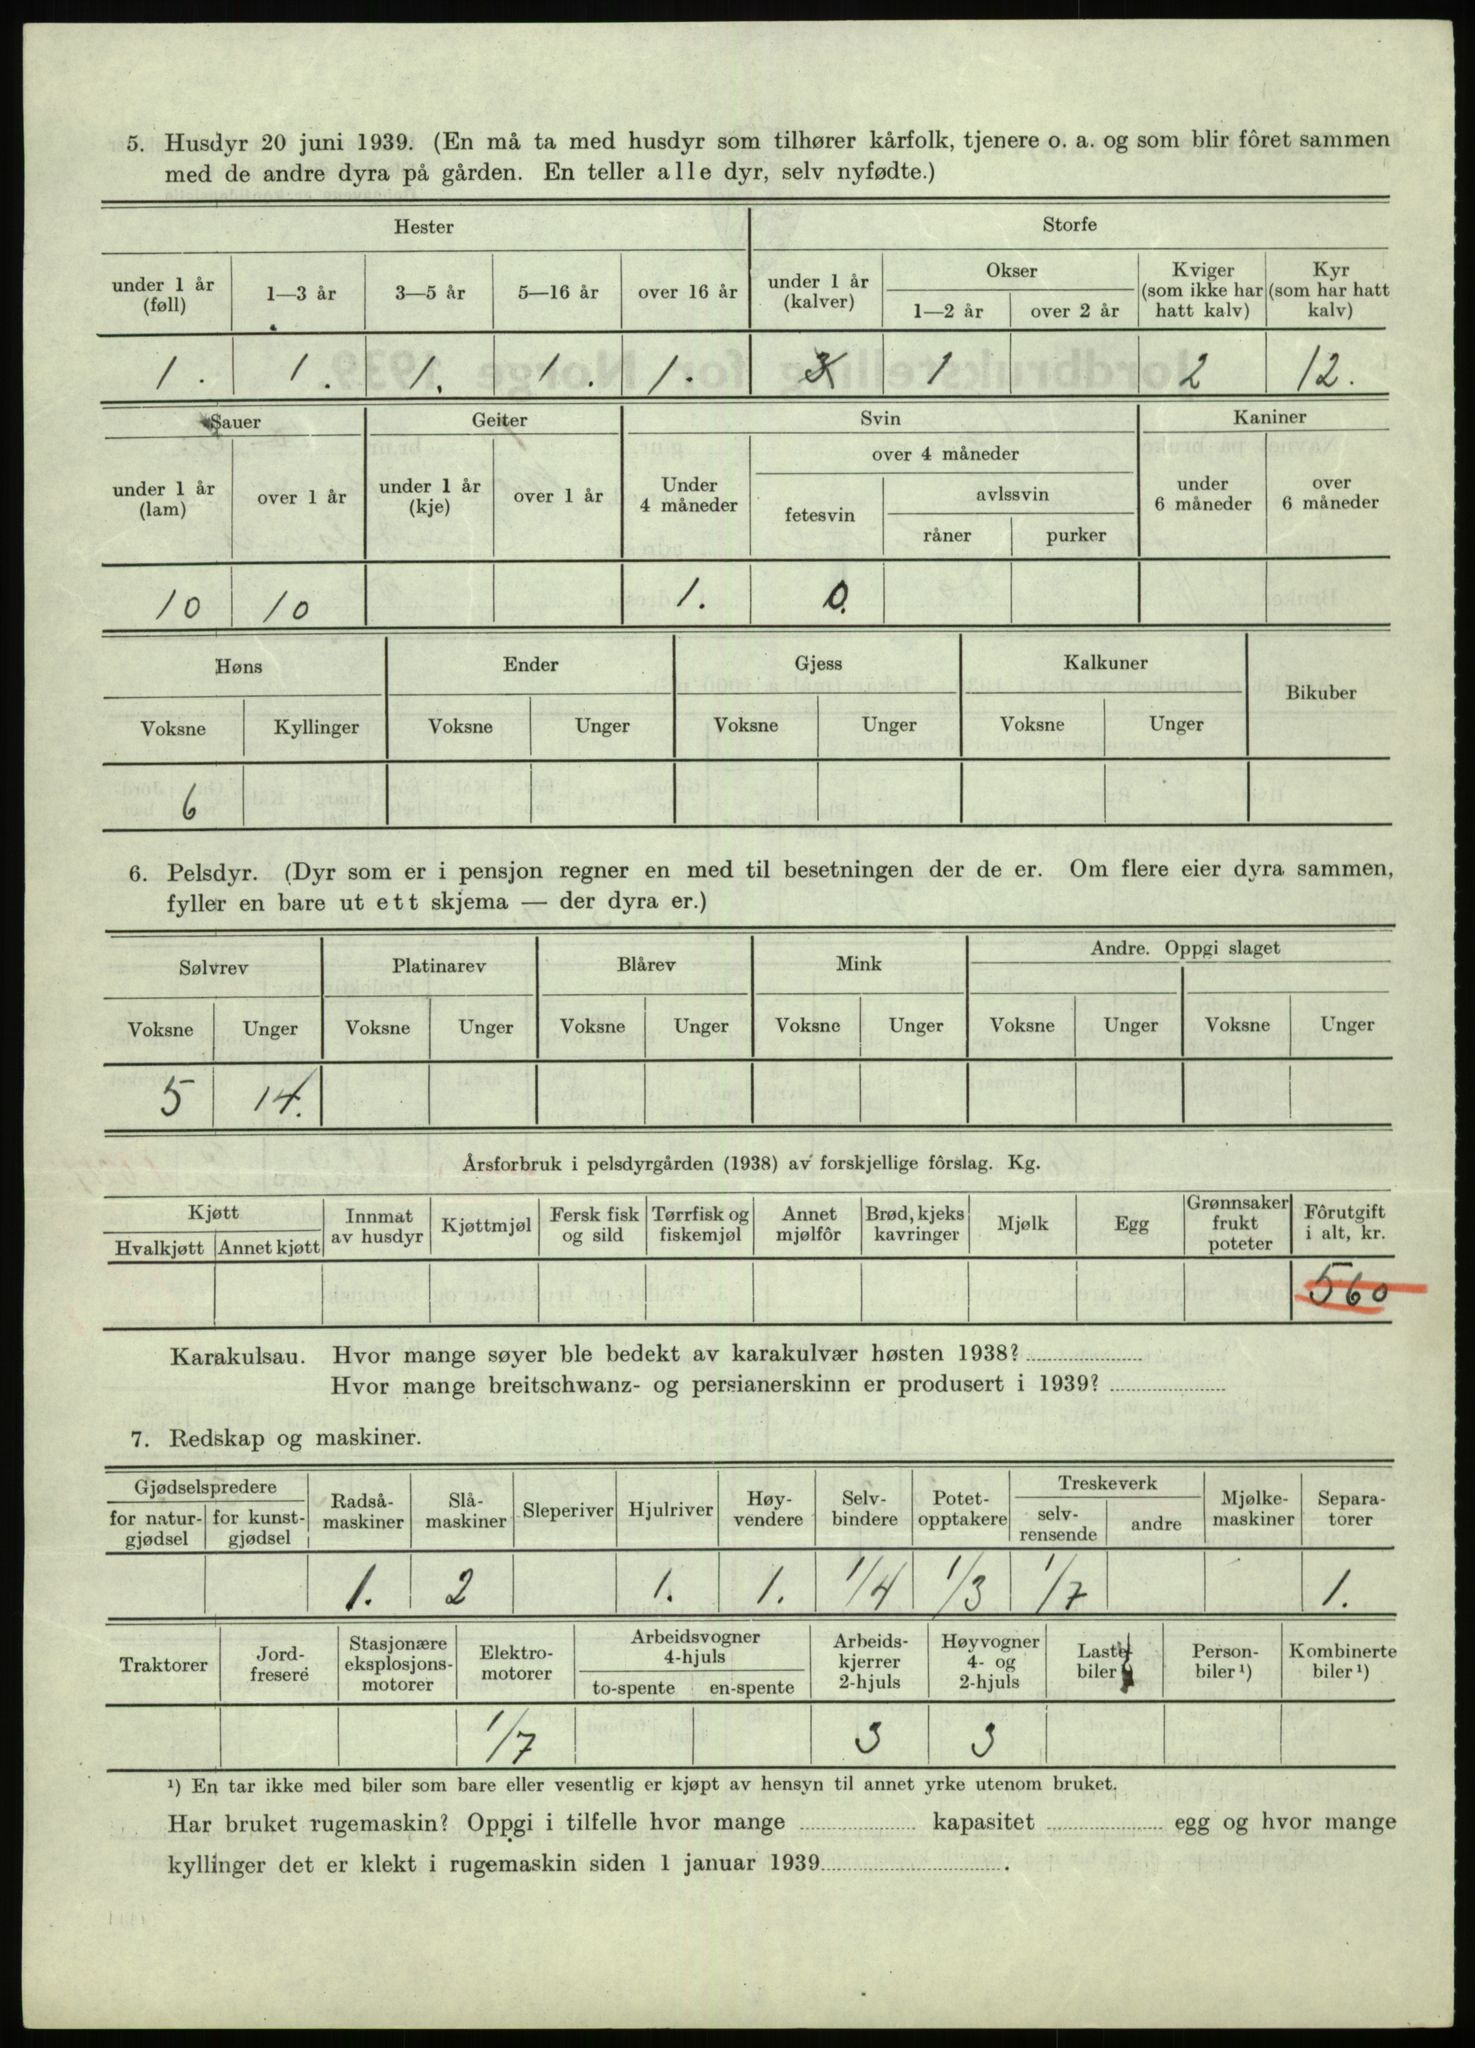 5. Husdyr 20 juni 1939. (En må ta med husdyr som tilhører kårfolk, tjenere o. a. og som blir fôret sammen
med de andre dyra på gården. En teller alle dyr, selv nyfødte.)
Hester Storfe
under 1 år (føll) 1—3 år 3—5 år 5—16 år over 16 år under 1 år (kalver) Okser 1—2 år over 2 år Kviger (som ikke har hatt kalv) Kyr (som har hatt kalv)
1. 1. 1. 1. 1. 1 2 12.
Sauer Geiter Svin Kaniner
under 1 år (lam) over 1 år under 1 år (kje) over 1 år Under 4 måneder over 4 måneder fetesvin avlssvin råner purker under 6 måneder over 6 måneder
10 10 1. 0.
Høns Ender Gjess Kalkuner Bikuber
Voksne Kyllinger Voksne Unger Voksne Unger Voksne Unger
6
6. Pelsdyr. (Dyr som er i pensjon regner en med til besetningen der de er. Om flere eier dyra sammen,
fyller en bare ut ett skjema — der dyra er.)
Sølvrev Platinarev Blårev Mink Andre. Oppgi slaget
Voksne Unger Voksne Unger Voksne Unger Voksne Unger Voksne Unger Voksne Unger
5 14.
Årsforbruk i pelsdyrgården (1938) av forskjellige fôrslag. Kg.
Kjøtt Hvalkjøtt Annet kjøtt Innmat av husdyr Kjøttmjøl Fersk fisk og sild Tørrfisk og fiskemjøl Annet mjølfôr Brød, kjeks kavringer Mjølk Egg Grønnsaker frukt poteter Fôrutgift i alt, kr.
560
Karakulsau. Hvor mange søyer ble bedekt av karakulvær høsten 1938?
Hvor mange breitschwanz- og persianerskinn er produsert i 1939?
7. Redskap og maskiner.
Gjødselspredere for natur-gjødsel for kunst-gjødsel Radså-maskiner Slå-maskiner Sleperiver Hjulriver Høy-vendere Selv-bindere Potet-opptakere Treskeverk selv-rensende andre Mjølke-maskiner Separa-torer
1. 2 1. 1. 1/4 1/3 1/7 1.
Traktorer Jord-fresere Stasjonære eksplosjons-motorer Elektro-motorer Arbeidsvogner 4-hjuls to-spente en-spente Arbeids-kjerrer 2-hjuls Høyvogner 4- og 2-hjuls Laste-biler Person-biler ¹) Kombinerte biler ¹)
1/7 3 3
¹) En tar ikke med biler som bare eller vesentlig er kjøpt av hensyn til annet yrke utenom bruket.
Har bruket rugemaskin? Oppgi i tilfelle hvor mange kapasitet egg og hvor mange
kyllinger det er klekt i rugemaskin siden 1 januar 1939 .